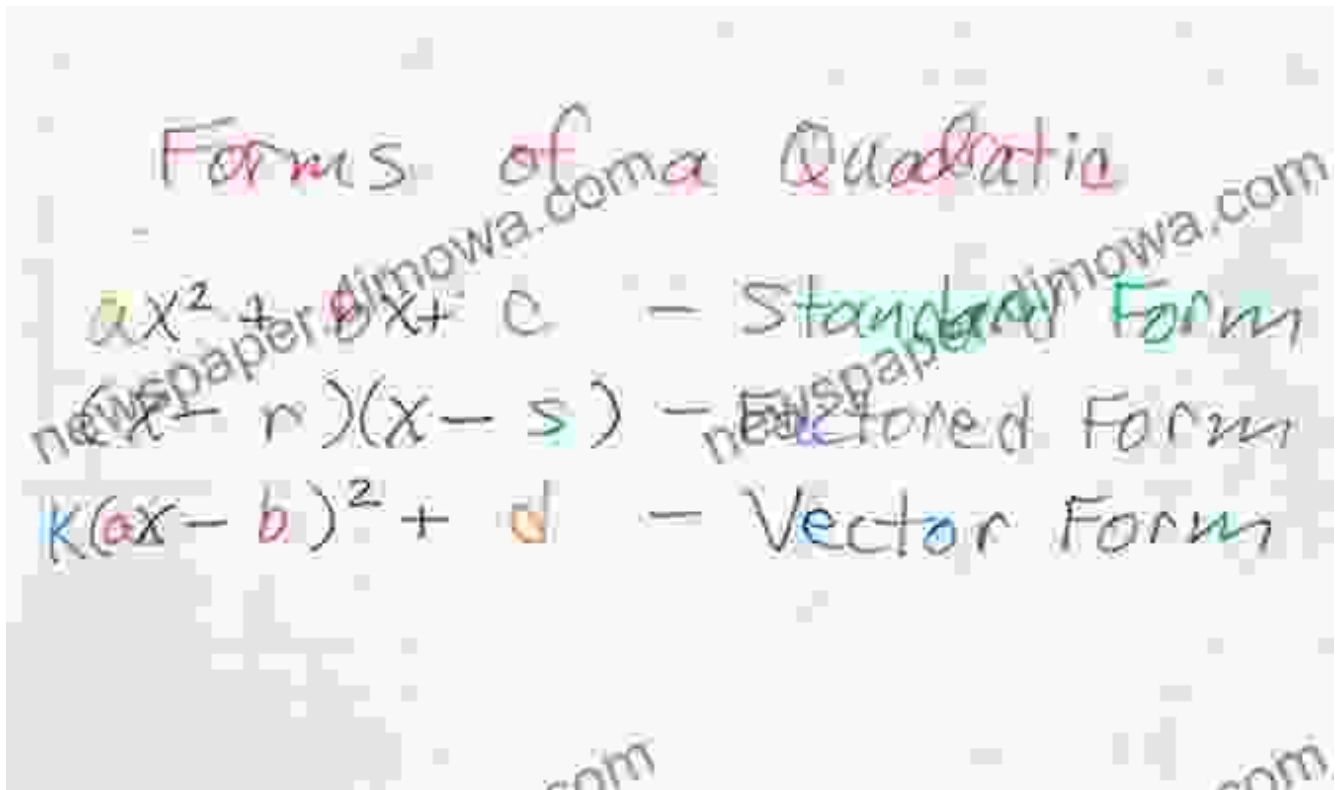 Forms of a Quadratic
ax² + bx + c - Standard Form
(x - r)(x - s) - Factored Form
k(ax - b)² + d - Vector Form
newspaper.dimowa.com
newspaper.dimowa.com
com
com